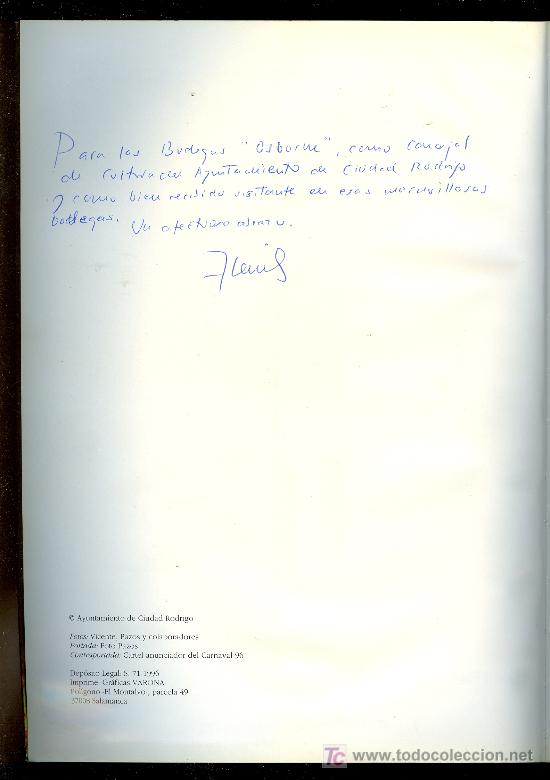 Para las Bodegas "Osborne", como concejal
de Cultura del Ayuntamiento de Ciudad Rodrigo
y como bien recibido visitante en esas maravillosas
bodegas. Un afectuoso abrazo.
© Ayuntamiento de Ciudad Rodrigo
Fotos: Vicente, Pazos y colaboradores
Portada: Foto Pazos
Contraportada: Cartel anunciador del Carnaval 96
Depósito Legal: S. 71-1996
Imprime: Gráficas VARONA
Polígono «El Montalvo», parcela 49
37008 Salamanca
TC www.todocoleccion.net